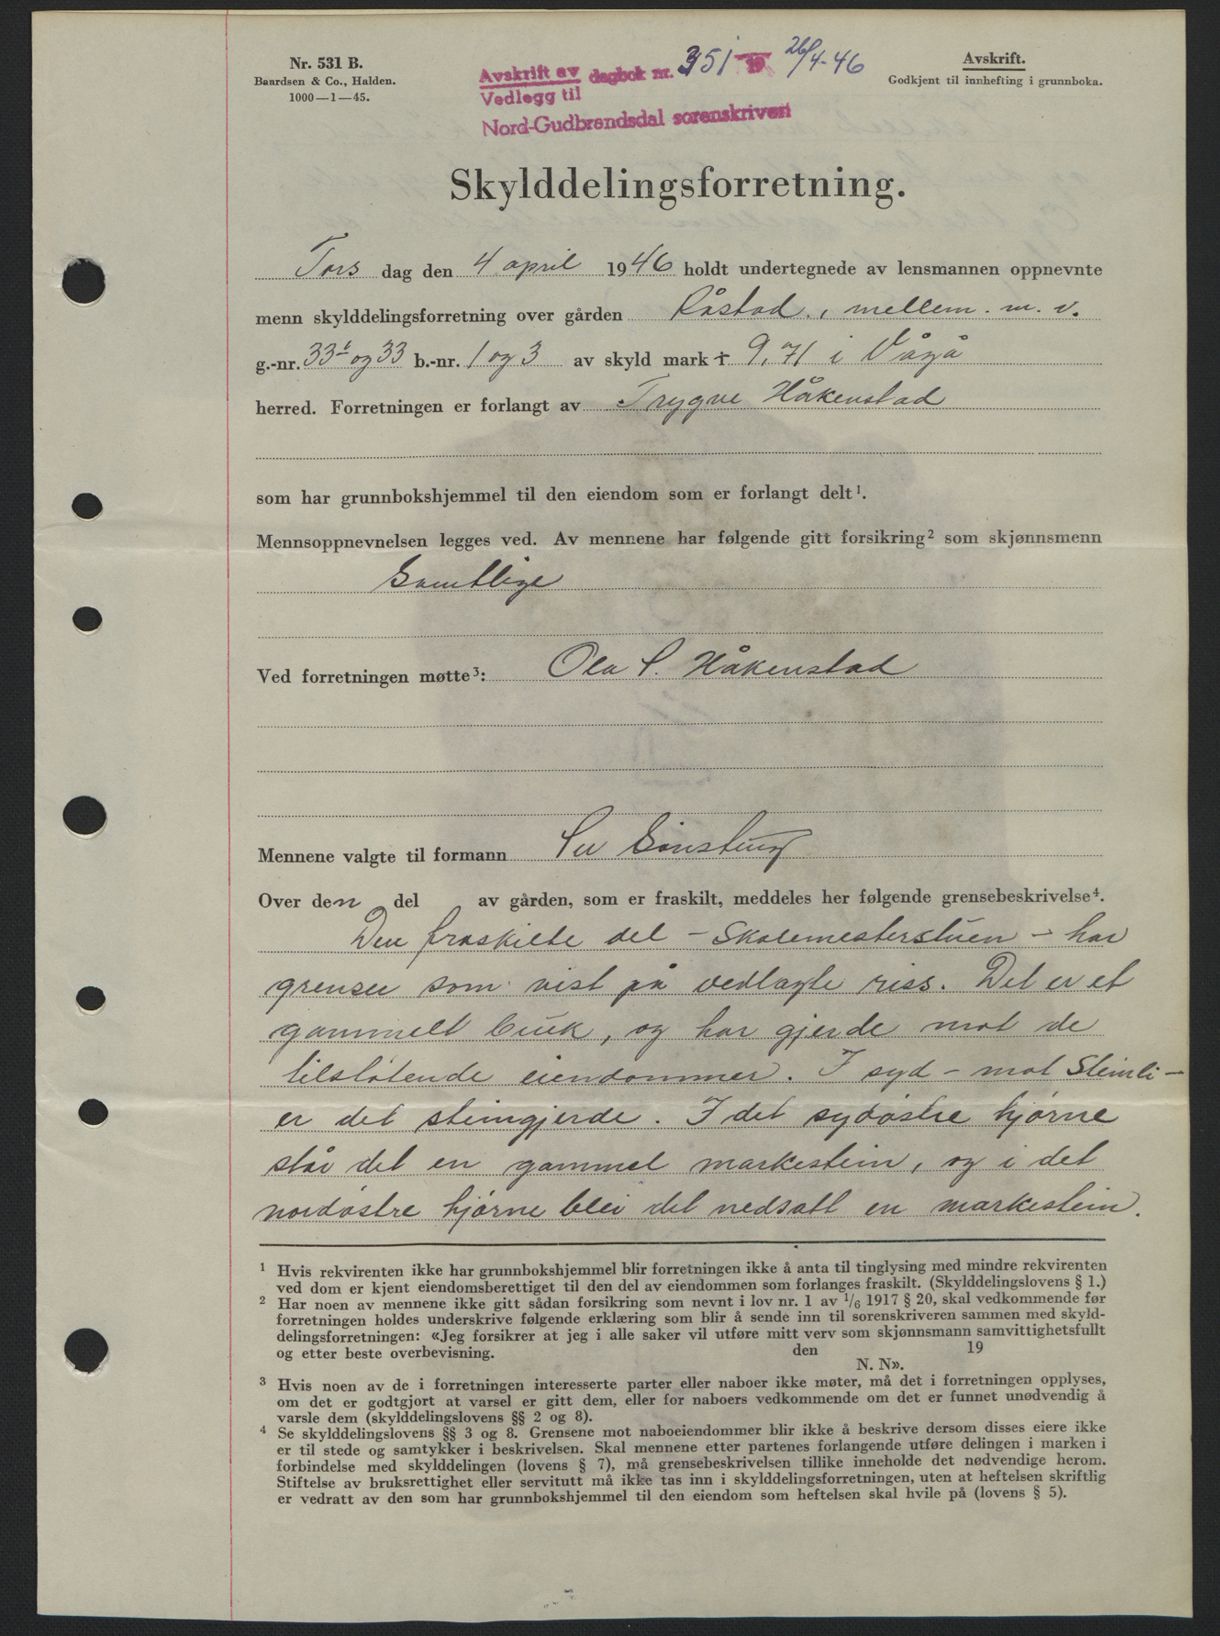 Nr. 531 B.
Baardsen & Co., Halden.
1000—1—45.
Avskrift av dagbok nr. 351 19 26/4-46
Vedlegg til
Nord-Gudbrandsdal sorenskriveri
Avskrift.
Godkjent til innhefting i grunnboka.
Skylddelingsforretning.
Tors dag den 4 april 1946 holdt undertegnede av lensmannen oppnevnte
menn skylddelingsforretning over gården Råstad, mellem. m. v.
g.-nr. 33¹ og 33 b.-nr. 1 og 3 av skyld mark 9,71 i Vågå
herred. Forretningen er forlangt av Trygve Håkenstad
som har grunnbokshjemmel til den eiendom som er forlangt delt¹.
Mennsoppnevnelsen legges ved. Av mennene har følgende gitt forsikring² som skjønnsmenn
Samtlige
Ved forretningen møtte³: Ola S. Håkenstad
Mennene valgte til formann
Over den del av gården, som er fraskilt, meddeles her følgende grensebeskrivelse⁴.
Den fraskilte del - Skolemesterstuen - har
grenser som vist på vedlagte riss. Det er et
gammelt bruk, og har gjerde mot de
tilstøtende eiendommer. I syd - mot Steinli -
er det steingjerde. I det sydøstre hjørne
står det en gammel markestein, og i det
nordøstre hjørne blei det nedsatt en markestein.
¹ Hvis rekvirenten ikke har grunnbokshjemmel blir forretningen ikke å anta til tinglysing med mindre rekvirenten
ved dom er kjent eiendomsberettiget til den del av eiendommen som forlanges fraskilt. (Skylddelingslovens § 1.)
² Har noen av mennene ikke gitt sådan forsikring som nevnt i lov nr. 1 av ¹/₆ 1917 § 20, skal vedkommende før
forretningen holdes underskrive følgende erklæring som blir å sende inn til sorenskriveren sammen med skyld-
delingsforretningen: «Jeg forsikrer at jeg i alle saker vil utføre mitt verv som skjønnsmann samvittighetsfullt
og etter beste overbevisning. den 19
N. N».
³ Hvis noen av de i forretningen interesserte parter eller naboer ikke møter, må det i forretningen opplyses,
om det er godtgjort at varsel er gitt dem, eller for naboers vedkommende om det er funnet unødvendig å
varsle dem (skylddelingslovens §§ 2 og 8).
⁴ Se skylddelingslovens §§ 3 og 8. Grensene mot naboeiendommer blir ikke å beskrive dersom disses eiere ikke
er til stede og samtykker i beskrivelsen. Skal mennene etter partenes forlangende utføre delingen i marken i
forbindelse med skylddelingen (lovens § 7), må grensebeskrivelsen tillike inneholde det nødvendige herom.
Stiftelse av bruksrettighet eller servitutt må ikke tas inn i skylddelingsforretningen, uten at heftelsen skriftlig
er vedratt av den som har grunnbokshjemmel til den eiendom som heftelsen skal hvile på (lovens § 5).